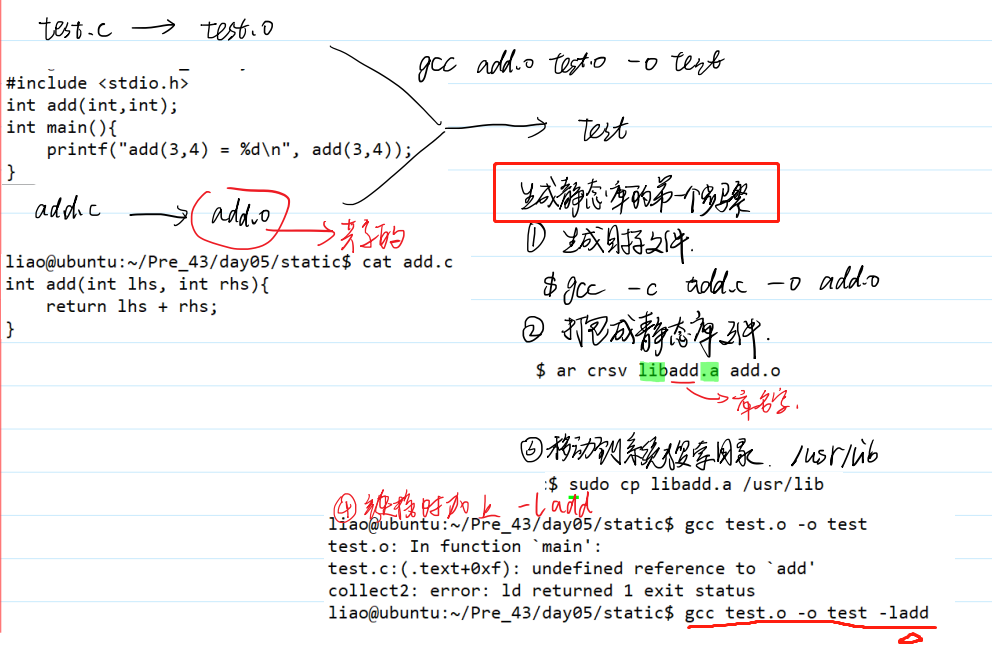 test.c → test.o
gcc add.o test.o -o test
#include <stdio.h>
int add(int,int);
int main(){
    printf("add(3,4) = %d\n", add(3,4));
}
test
add.c → add.o → 共享的
liao@ubuntu:~/Pre_43/day05/static$ cat add.c
int add(int lhs, int rhs){
    return lhs + rhs;
}
生成静态库的第一个步骤
① 生成目标文件.
$ gcc -c add.c -o add.o
② 打包成静态库文件.
$ ar crsv libadd.a add.o
库名字.
③ 移动到系统搜索目录. /usr/lib
:$ sudo cp libadd.a /usr/lib
④ 链接时加上 -ladd
liao@ubuntu:~/Pre_43/day05/static$ gcc test.o -o test
test.o: In function `main':
test.c:(.text+0xf): undefined reference to `add'
collect2: error: ld returned 1 exit status
liao@ubuntu:~/Pre_43/day05/static$ gcc test.o -o test -ladd